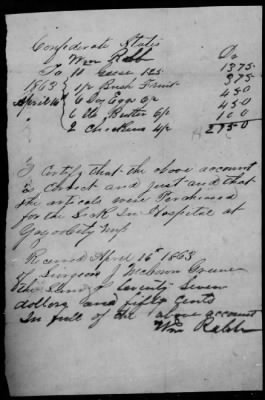 Confederate States
Wm Rabb Dr
To 11 Geese 125 1375
1863 1/2 Bush Fruit 375
April 16 6 Doz Eggs 450
" 6 lb Butter 450
2 Chickens 100
2750
I Certify that the above account
is Correct and just and that
the articals were Purchased
for the Sick In Hospital at
Yazoo City Miss
Received April 16th 1863
of Surgeon J
the Sum of twenty Seven
dollars and fifty Cents
In full of the above account
Wm Rabb